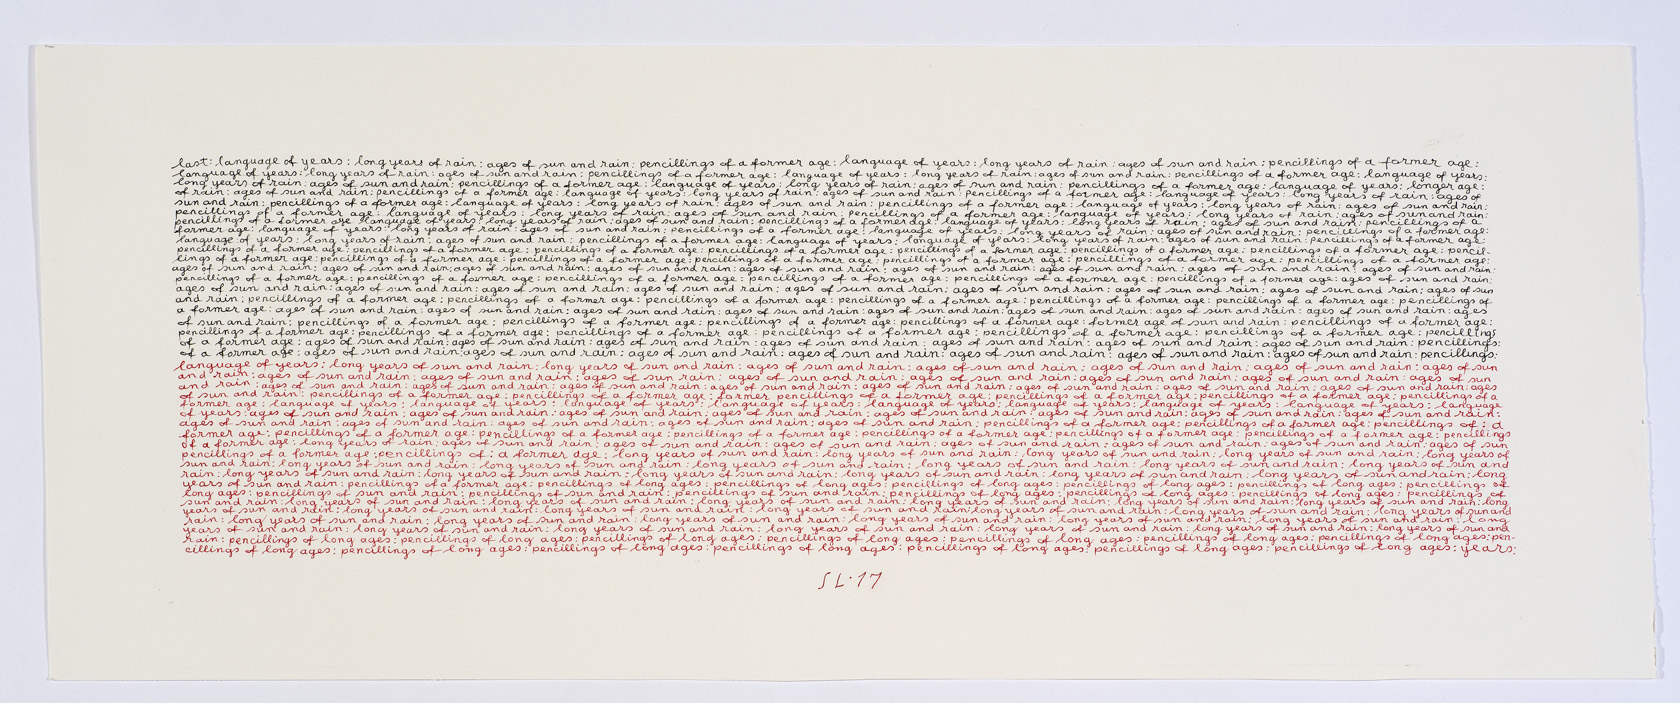 last: language of years: long years of rain: ages of sun and rain: pencillings of a former age: language of years: long years of rain: ages of sun and rain: pencillings of a former age:
language of years: long years of rain: ages of sun and rain: pencillings of a former age: language of years: long years of rain: ages of sun and rain: pencillings of a former age: language of years:
long years of rain: ages of sun and rain: pencillings of a former age: language of years: long years of rain: ages of sun and rain: pencillings of a former age: language of years: longer age:
of rain: ages of sun and rain: pencillings of a former age: language of years: long years of rain: ages of sun and rain: pencillings of a former age: language of years: long years of rain: ages of
sun and rain: pencillings of a former age: language of years: long years of rain: ages of sun and rain: pencillings of a former age: language of years: long years of rain: ages of sun and rain:
pencillings of a former age: language of years: long years of rain: ages of sun and rain: pencillings of a former age: language of years: long years of rain: ages of sun and rain:
pencillings of a former age: language of years: long years of rain: ages of sun and rain: pencillings of a former age: language of years: long years of rain: ages of sun and rain: pencillings of a
former age: language of years: long years of rain: ages of sun and rain: pencillings of a former age: language of years: long years of rain: ages of sun and rain: pencillings of a former age:
language of years: long years of rain: ages of sun and rain: pencillings of a former age: language of years: language of years: long years of rain: ages of sun and rain: pencillings of a former age:
pencillings of a former age: pencillings of a former age: pencillings of a former age: pencillings of a former age: pencillings of a former age: pencillings of a former age: pencil-
lings of a former age: pencillings of a former age: pencillings of a former age: pencillings of a former age: pencillings of a former age: pencillings of a former age: pencillings of a former age:
ages of sun and rain: ages of sun and rain: ages of sun and rain: ages of sun and rain: ages of sun and rain: ages of sun and rain: ages of sun and rain: ages of sun and rain: ages of sun and rain:
pencillings of a former age: pencillings of a former age: pencillings of a former age: pencillings of a former age: pencillings of a former age: pencillings of a former age: ages of sun and rain:
ages of sun and rain: ages of sun and rain: ages of sun and rain: ages of sun and rain: ages of sun and rain: ages of sun and rain: ages of sun and rain: ages of sun and rain: ages of sun
and rain: pencillings of a former age: pencillings of a former age: pencillings of a former age: pencillings of a former age: pencillings of a former age: pencillings of a former age: pencillings of
a former age: ages of sun and rain: ages of sun and rain: ages of sun and rain: ages of sun and rain: ages of sun and rain: ages of sun and rain: ages of sun and rain: ages
of sun and rain: pencillings of a former age: pencillings of a former age: pencillings of a former age: pencillings of a former age: former age of sun and rain: pencillings of a former age:
pencillings of a former age: pencillings of a former age: pencillings of a former age: pencillings of a former age: pencillings of a former age: pencillings of a former age: pencillings
of a former age: ages of sun and rain: ages of sun and rain: ages of sun and rain: ages of sun and rain: ages of sun and rain: ages of sun and rain: ages of sun and rain: pencillings:
of a former age: ages of sun and rain: ages of sun and rain: ages of sun and rain: ages of sun and rain: ages of sun and rain: ages of sun and rain: ages of sun and rain: pencillings:
language of years: long years of sun and rain: long years of sun and rain: ages of sun and rain: ages of sun and rain: ages of sun and rain: ages of sun and rain: ages of sun
and rain: ages of sun and rain: ages of sun and rain: ages of sun and rain: ages of sun and rain: ages of sun and rain: ages of sun and rain: ages of sun and rain: ages of sun
and rain: ages of sun and rain: ages of sun and rain: ages of sun and rain: ages of sun and rain: ages of sun and rain: ages of sun and rain: ages of sun and rain: ages
of sun and rain: pencillings of a former age: pencillings of a former age: former pencillings of a former age: pencillings of a former age: pencillings of a former age: pencillings of a
former age: language of years: language of years: language of years: language of years: language of years: language of years: language of years: language of years: language
of years: ages of sun and rain: ages of sun and rain: ages of sun and rain: ages of sun and rain: ages of sun and rain: ages of sun and rain: ages of sun and rain:
ages of sun and rain: ages of sun and rain: ages of sun and rain: ages of sun and rain: ages of sun and rain: pencillings of a former age: pencillings of a former age: pencillings of: a
former age: pencillings of a former age: pencillings of a former age: pencillings of a former age: pencillings of a former age: pencillings of a former age: pencillings of a former age: pencillings
of a former age: long years of sun and rain: ages of sun and rain: ages of sun and rain: ages of sun and rain: ages of sun and rain: ages of sun and rain: ages of sun
pencillings of a former age: pencillings of: a former age: long years of sun and rain: long years of sun and rain: long years of sun and rain: long years of sun and rain: long years of
sun and rain: long years of sun and rain: long years of sun and rain: long years of sun and rain: long years of sun and rain: long years of sun and rain: long years of sun and
rain: long years of sun and rain: long years of sun and rain: long years of sun and rain: long years of sun and rain: long years of sun and rain: long years of sun and rain: long
years of sun and rain: pencillings of a former age: pencillings of long ages: pencillings of long ages: pencillings of long ages: pencillings of long ages: pencillings of long ages: pencillings of
long ages: pencillings of sun and rain: pencillings of sun and rain: pencillings of sun and rain: pencillings of long ages: pencillings of long ages: pencillings of long ages: pencillings of
sun and rain: long years of sun and rain: long years of sun and rain: long years of sun and rain: long years of sun and rain: long years of sun and rain: long
years of sun and rain: long years of sun and rain: long years of sun and rain: long years of sun and rain: long years of sun and rain: long years of sun and
rain: long years of sun and rain: long years of sun and rain: long years of sun and rain: long years of sun and rain: long years of sun and rain: long
years of sun and rain: long years of sun and rain: long years of sun and rain: long years of sun and rain: long years of sun and rain: long years of sun and
rain: pencillings of long ages: pencillings of long ages: pencillings of long ages: pencillings of long ages: pencillings of long ages: pencillings of long ages: pencillings of long ages: pen-
cillings of long ages: pencillings of long ages: pencillings of long ages: pencillings of long ages: pencillings of long ages: pencillings of long ages: pencillings of long ages: years:
SL·17